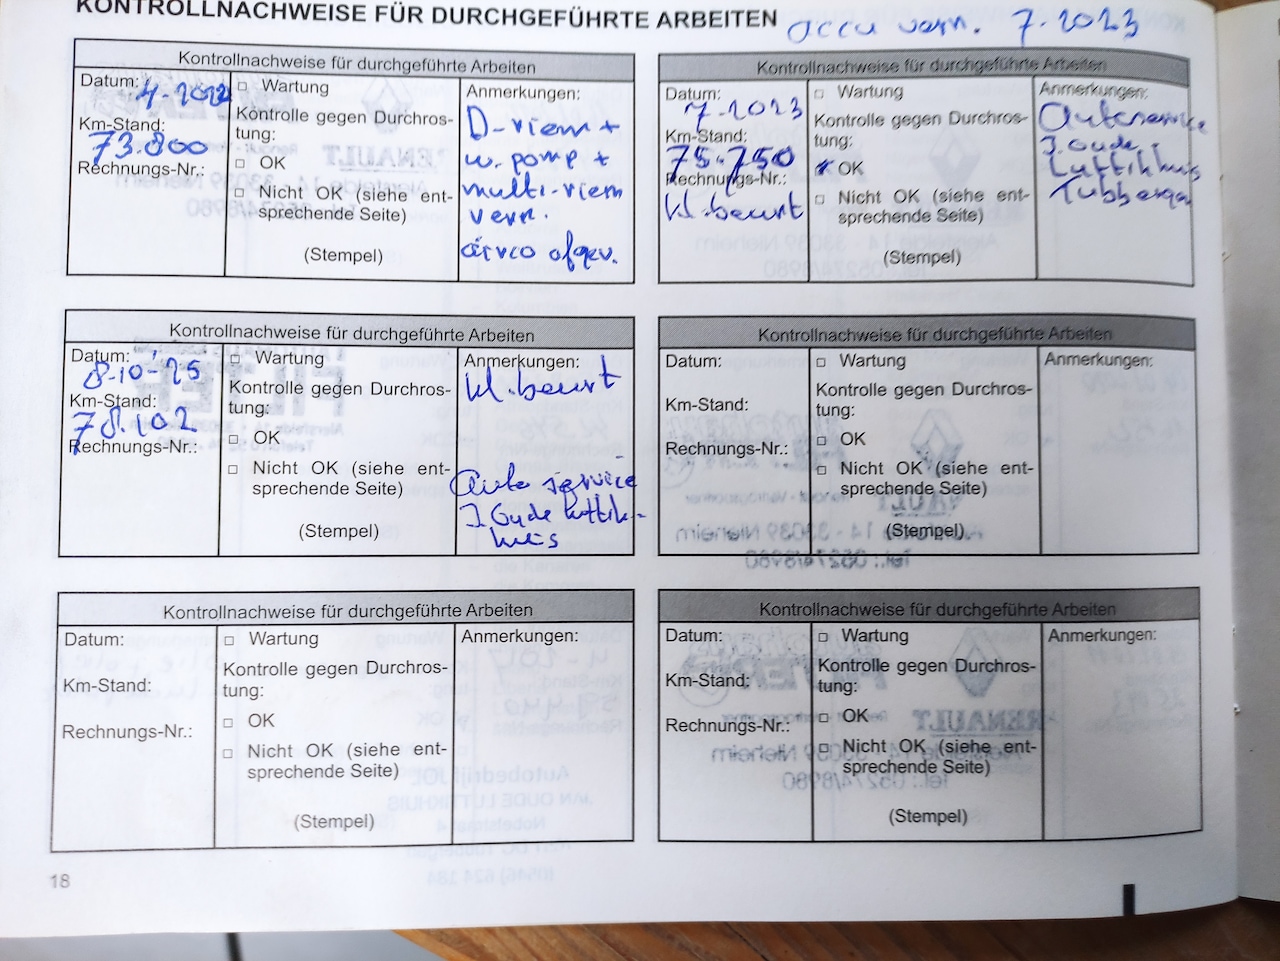 KONTROLLNACHWEISE FÜR DURCHGEFÜHRTE ARBEITEN
accu vern. 7-2023
Kontrollnachweise für durchgeführte Arbeiten
Datum: 4-2022
Km-Stand:
73.800
Rechnungs-Nr.:
□ Wartung
Kontrolle gegen Durchros-
tung:
□ OK
□ Nicht OK (siehe ent-
sprechende Seite)
(Stempel)
Anmerkungen:
D-riem +
w. pomp +
multi-riem
vern.
airco afgev.
Kontrollnachweise für durchgeführte Arbeiten
Datum:
7-2023
Km-Stand:
75.750
Rechnungs-Nr.:
kl. beurt
□ Wartung
Kontrolle gegen Durchros-
tung:
OK
□ Nicht OK (siehe ent-
sprechende Seite)
(Stempel)
Anmerkungen:
Autoservice
J. Oude
Luttikhuis
Tubbergen
Kontrollnachweise für durchgeführte Arbeiten
Datum:
8-10-'25
Km-Stand:
78.102
Rechnungs-Nr.:
□ Wartung
Kontrolle gegen Durchros-
tung:
□ OK
□ Nicht OK (siehe ent-
sprechende Seite)
(Stempel)
Anmerkungen:
kl. beurt
Auto service
J. Oude Luttik-
huis
Kontrollnachweise für durchgeführte Arbeiten
Datum:
Km-Stand:
Rechnungs-Nr.:
□ Wartung
Kontrolle gegen Durchros-
tung:
□ OK
□ Nicht OK (siehe ent-
sprechende Seite)
(Stempel)
Anmerkungen:
Kontrollnachweise für durchgeführte Arbeiten
Datum:
Km-Stand:
Rechnungs-Nr.:
□ Wartung
Kontrolle gegen Durchros-
tung:
□ OK
□ Nicht OK (siehe ent-
sprechende Seite)
(Stempel)
Anmerkungen:
Kontrollnachweise für durchgeführte Arbeiten
Datum:
Km-Stand:
Rechnungs-Nr.:
□ Wartung
Kontrolle gegen Durchros-
tung:
□ OK
□ Nicht OK (siehe ent-
sprechende Seite)
(Stempel)
Anmerkungen:
18